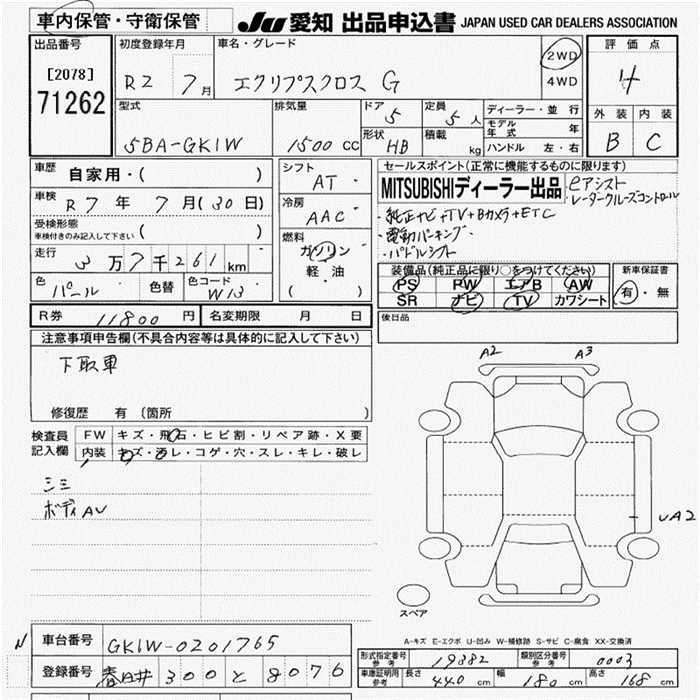 車内保管・守衛保管 JU 愛知 出品申込書 JAPAN USED CAR DEALERS ASSOCIATION
出品番号 初度登録年月 車名・グレード 2WD 評価点
[2078] R2 7月 エクリプスクロス G 4WD 4
71262 型式 排気量 ドア 5 定員 5人 ディーラー・並行 外装 内装
5BA-GK1W 1500 CC 形状 HB 積載 kg モデル年式 年 B C
ハンドル 左・右
車歴 自家用・( ) シフト AT セールスポイント(正常に機能するものに限ります)
車検 R7年 7月(30日) 冷房 AAC MITSUBISHIディーラー出品 eアシスト
レーダークルーズコントロール
・純正ナビ+TV+Bカメラ+ETC
受検形態 車検付きのみ記入して下さい ( ) 燃料 ・電動パーキング
走行 3万7千261km ガソリン ・パドルシフト
色 パール 色替 色コード W13 軽油 ( )
装備品(純正品に限り○をつけてください) 新車保証書
PS PW エアB AW 有・無
SR ナビ TV カワシート
R券 11800円 名変期限 月 日 後日品
注意事項申告欄(不具合内容等は具体的に記入して下さい)
下取車
修復歴 有(箇所 )
A2 A3
検査員記入欄 FW キズ・飛石・ヒビ割・リペア跡・X要
内装 キズ・汚レ・コゲ・穴・スレ・キレ・破レ
シミ
ボディAU
UA2
スペア
A-キズ E-エクボ U-凹み W-補修跡 S-サビ C-腐食 XX-交換済
N 車台番号 GK1W-0201765
登録番号 春日井 300 と 8076
形式指定番号 参考 19882 類別区分番号 参考 0003
車庫証明用 参考 長さ 440 cm 幅 180 cm 高さ 168 cm